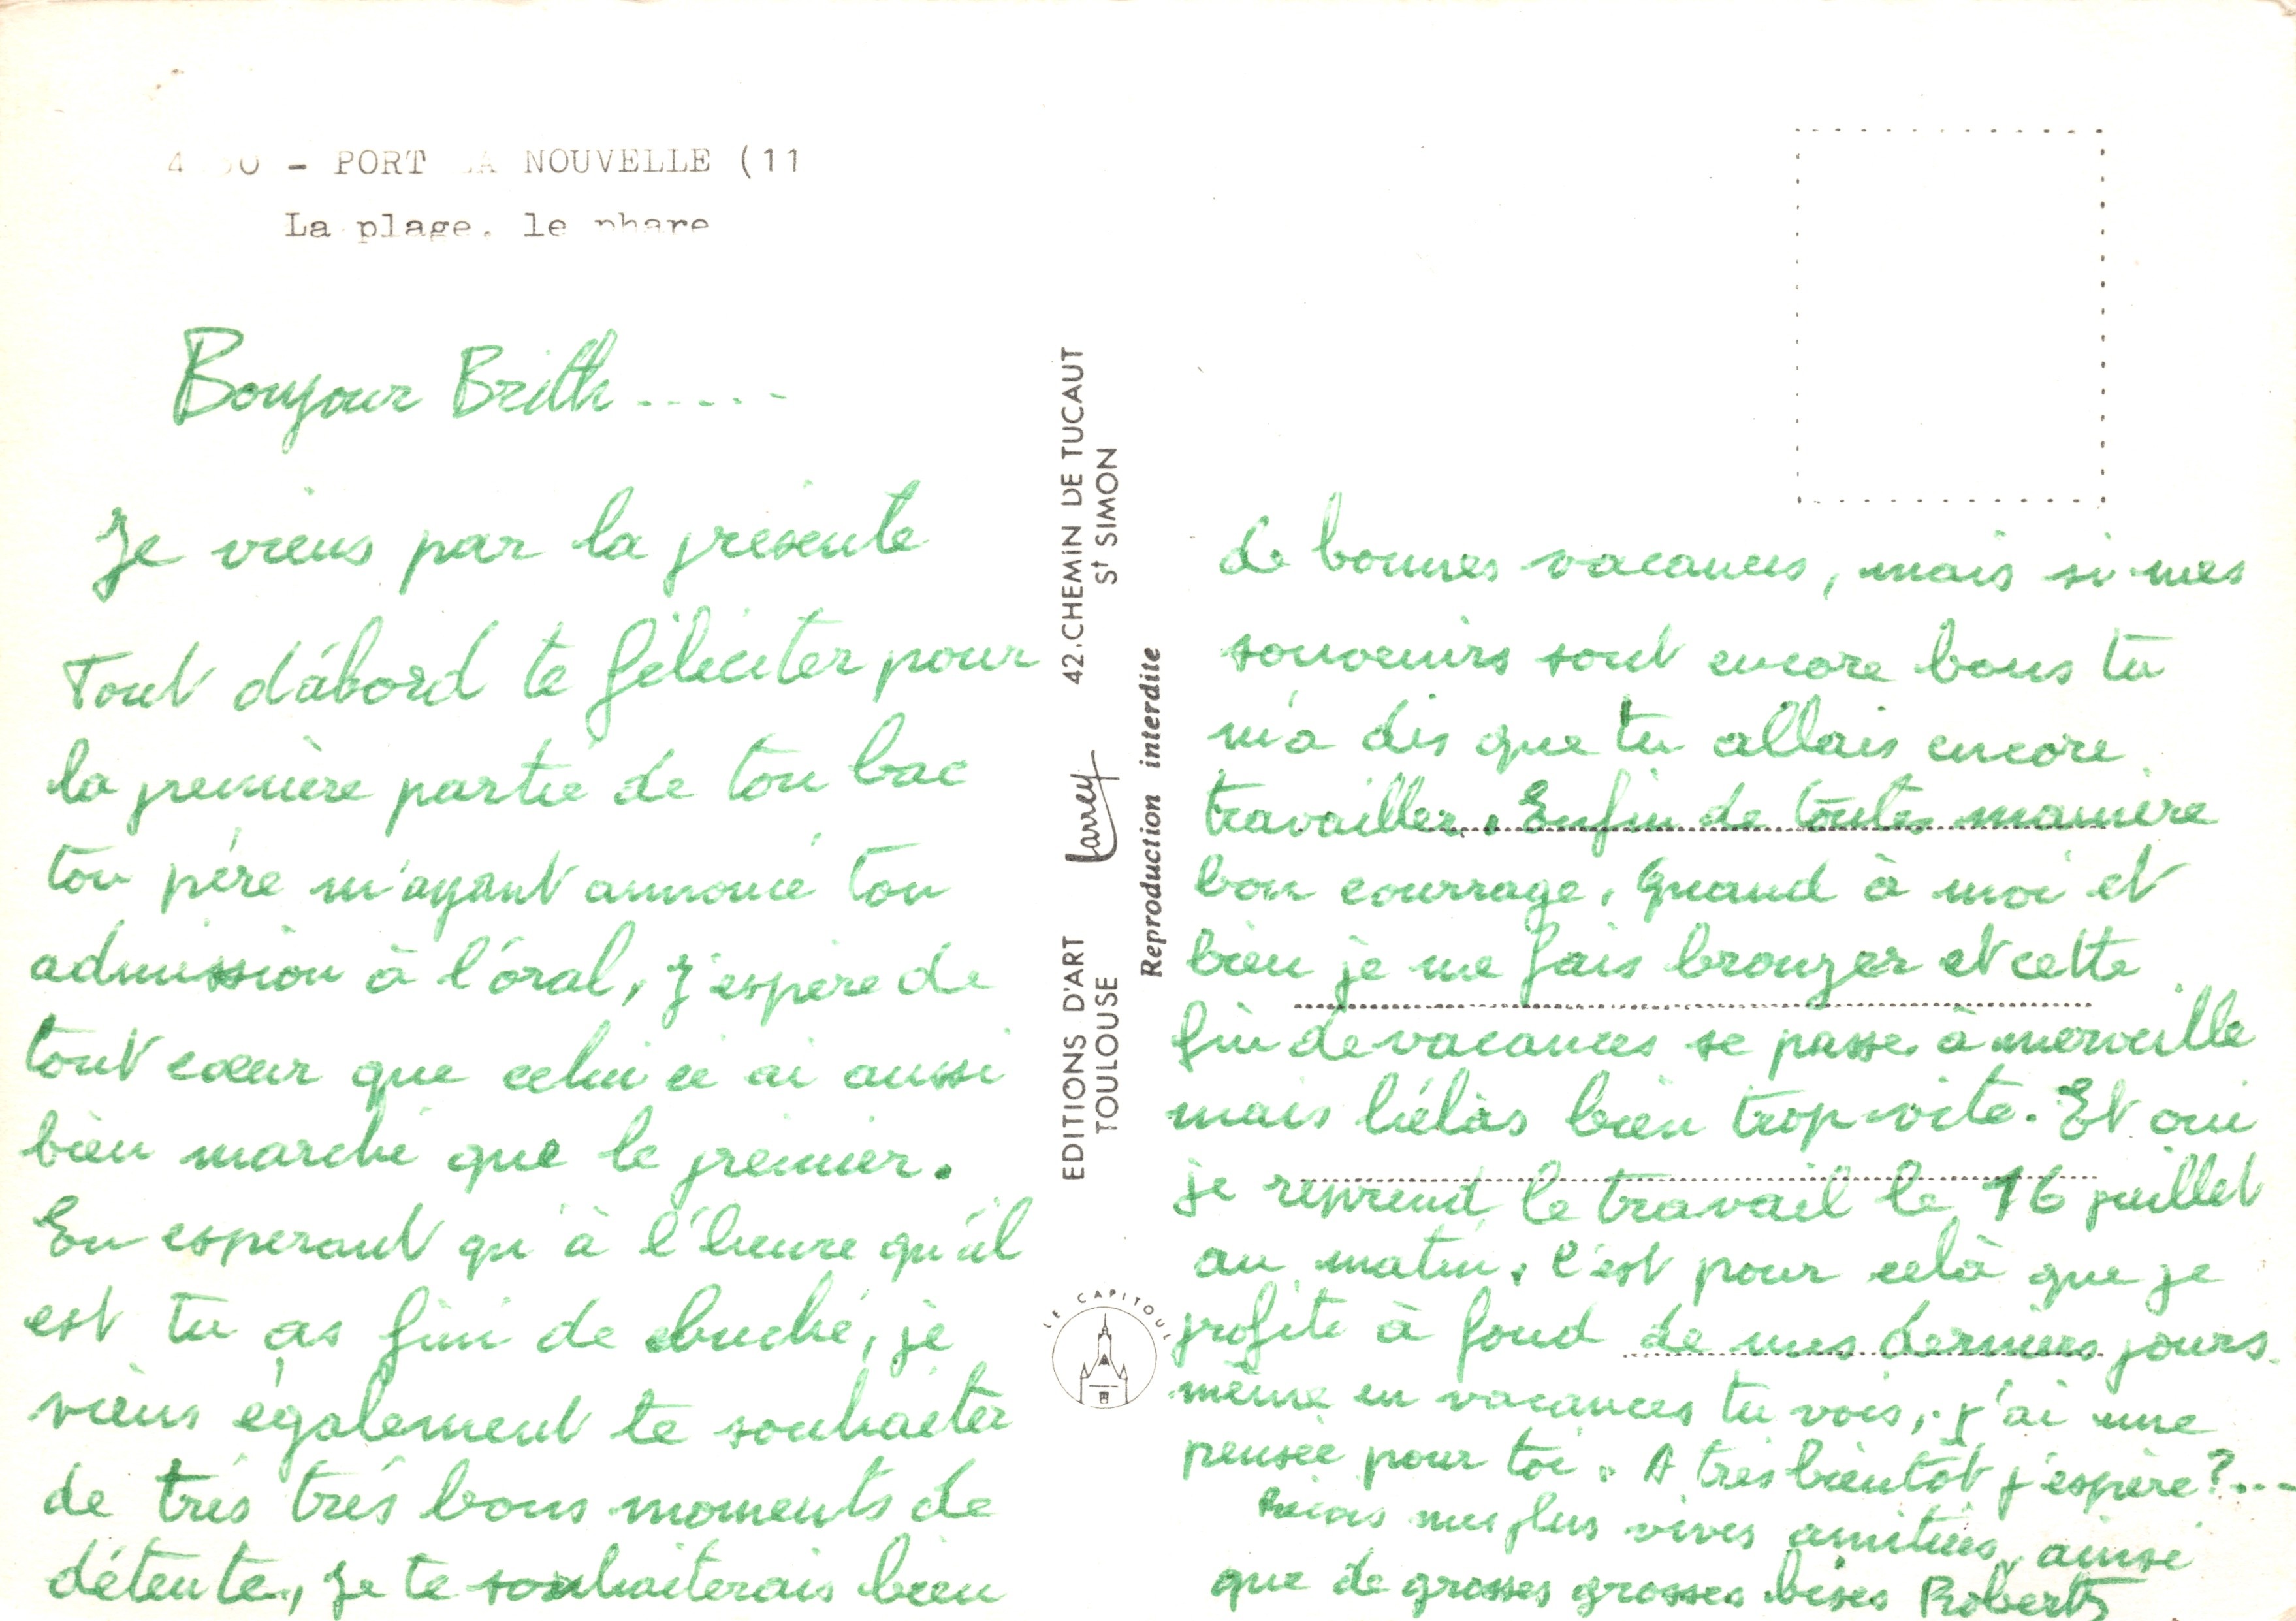 - PORT LA NOUVELLE (11
La plage, le phare
Bonjour Brith .....
Je viens par la présente
Tout d'abord te féliciter pour
la première partie de ton bac
ton père m'ayant annoncé ton
admission à l'oral, j'espère de
tout cœur que celui ci ai aussi
bien marché que le premier.
En esperant qu'à l'heure qu'il
est tu as fini de buché, je
viens également te souhaiter
de très très bons moments de
détente, je te souhaiterais bien
EDITIONS D'ART Larrey 42.CHEMIN DE TUCAUT
TOULOUSE St SIMON
Reproduction interdite
LE CAPITOUL
de bonnes vacances, mais si mes
souvenirs sont encore bons tu
m'a dis que tu allais encore
travailler. Enfin de toutes manière
bon courrage. Quand à moi et
bien je me fais bronzer et cette
fin de vacances se passe à merveille
mais hélàs bien trop vite. Et oui
je reprend le travail le 16 juillet
au matin. C'est pour celà que je
profite à fond de mes derniers jours.
même en vacances tu vois, j'ai une
pensée pour toi. A très bientôt j'espère?...
Reçois mes plus vives amitiés, ainsi
que de grosses grosses bises Robert